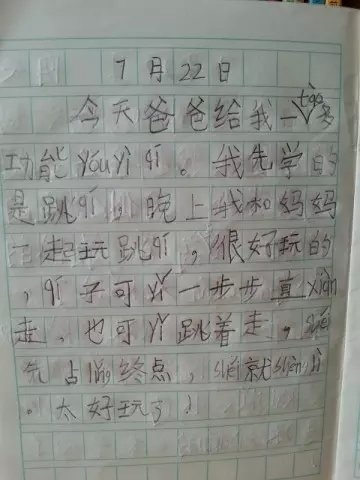 7月22日
今天爸爸给我一tào多
功能yóu yì qí。我先学的
是跳qí,晚上我和妈妈
一起玩跳qí,很好玩的
,qí子可yǐ一步步直xiàn
走,也可yǐ跳着走,shéi
先占lǐng终点,shéi就shèng lì
。太好玩了!